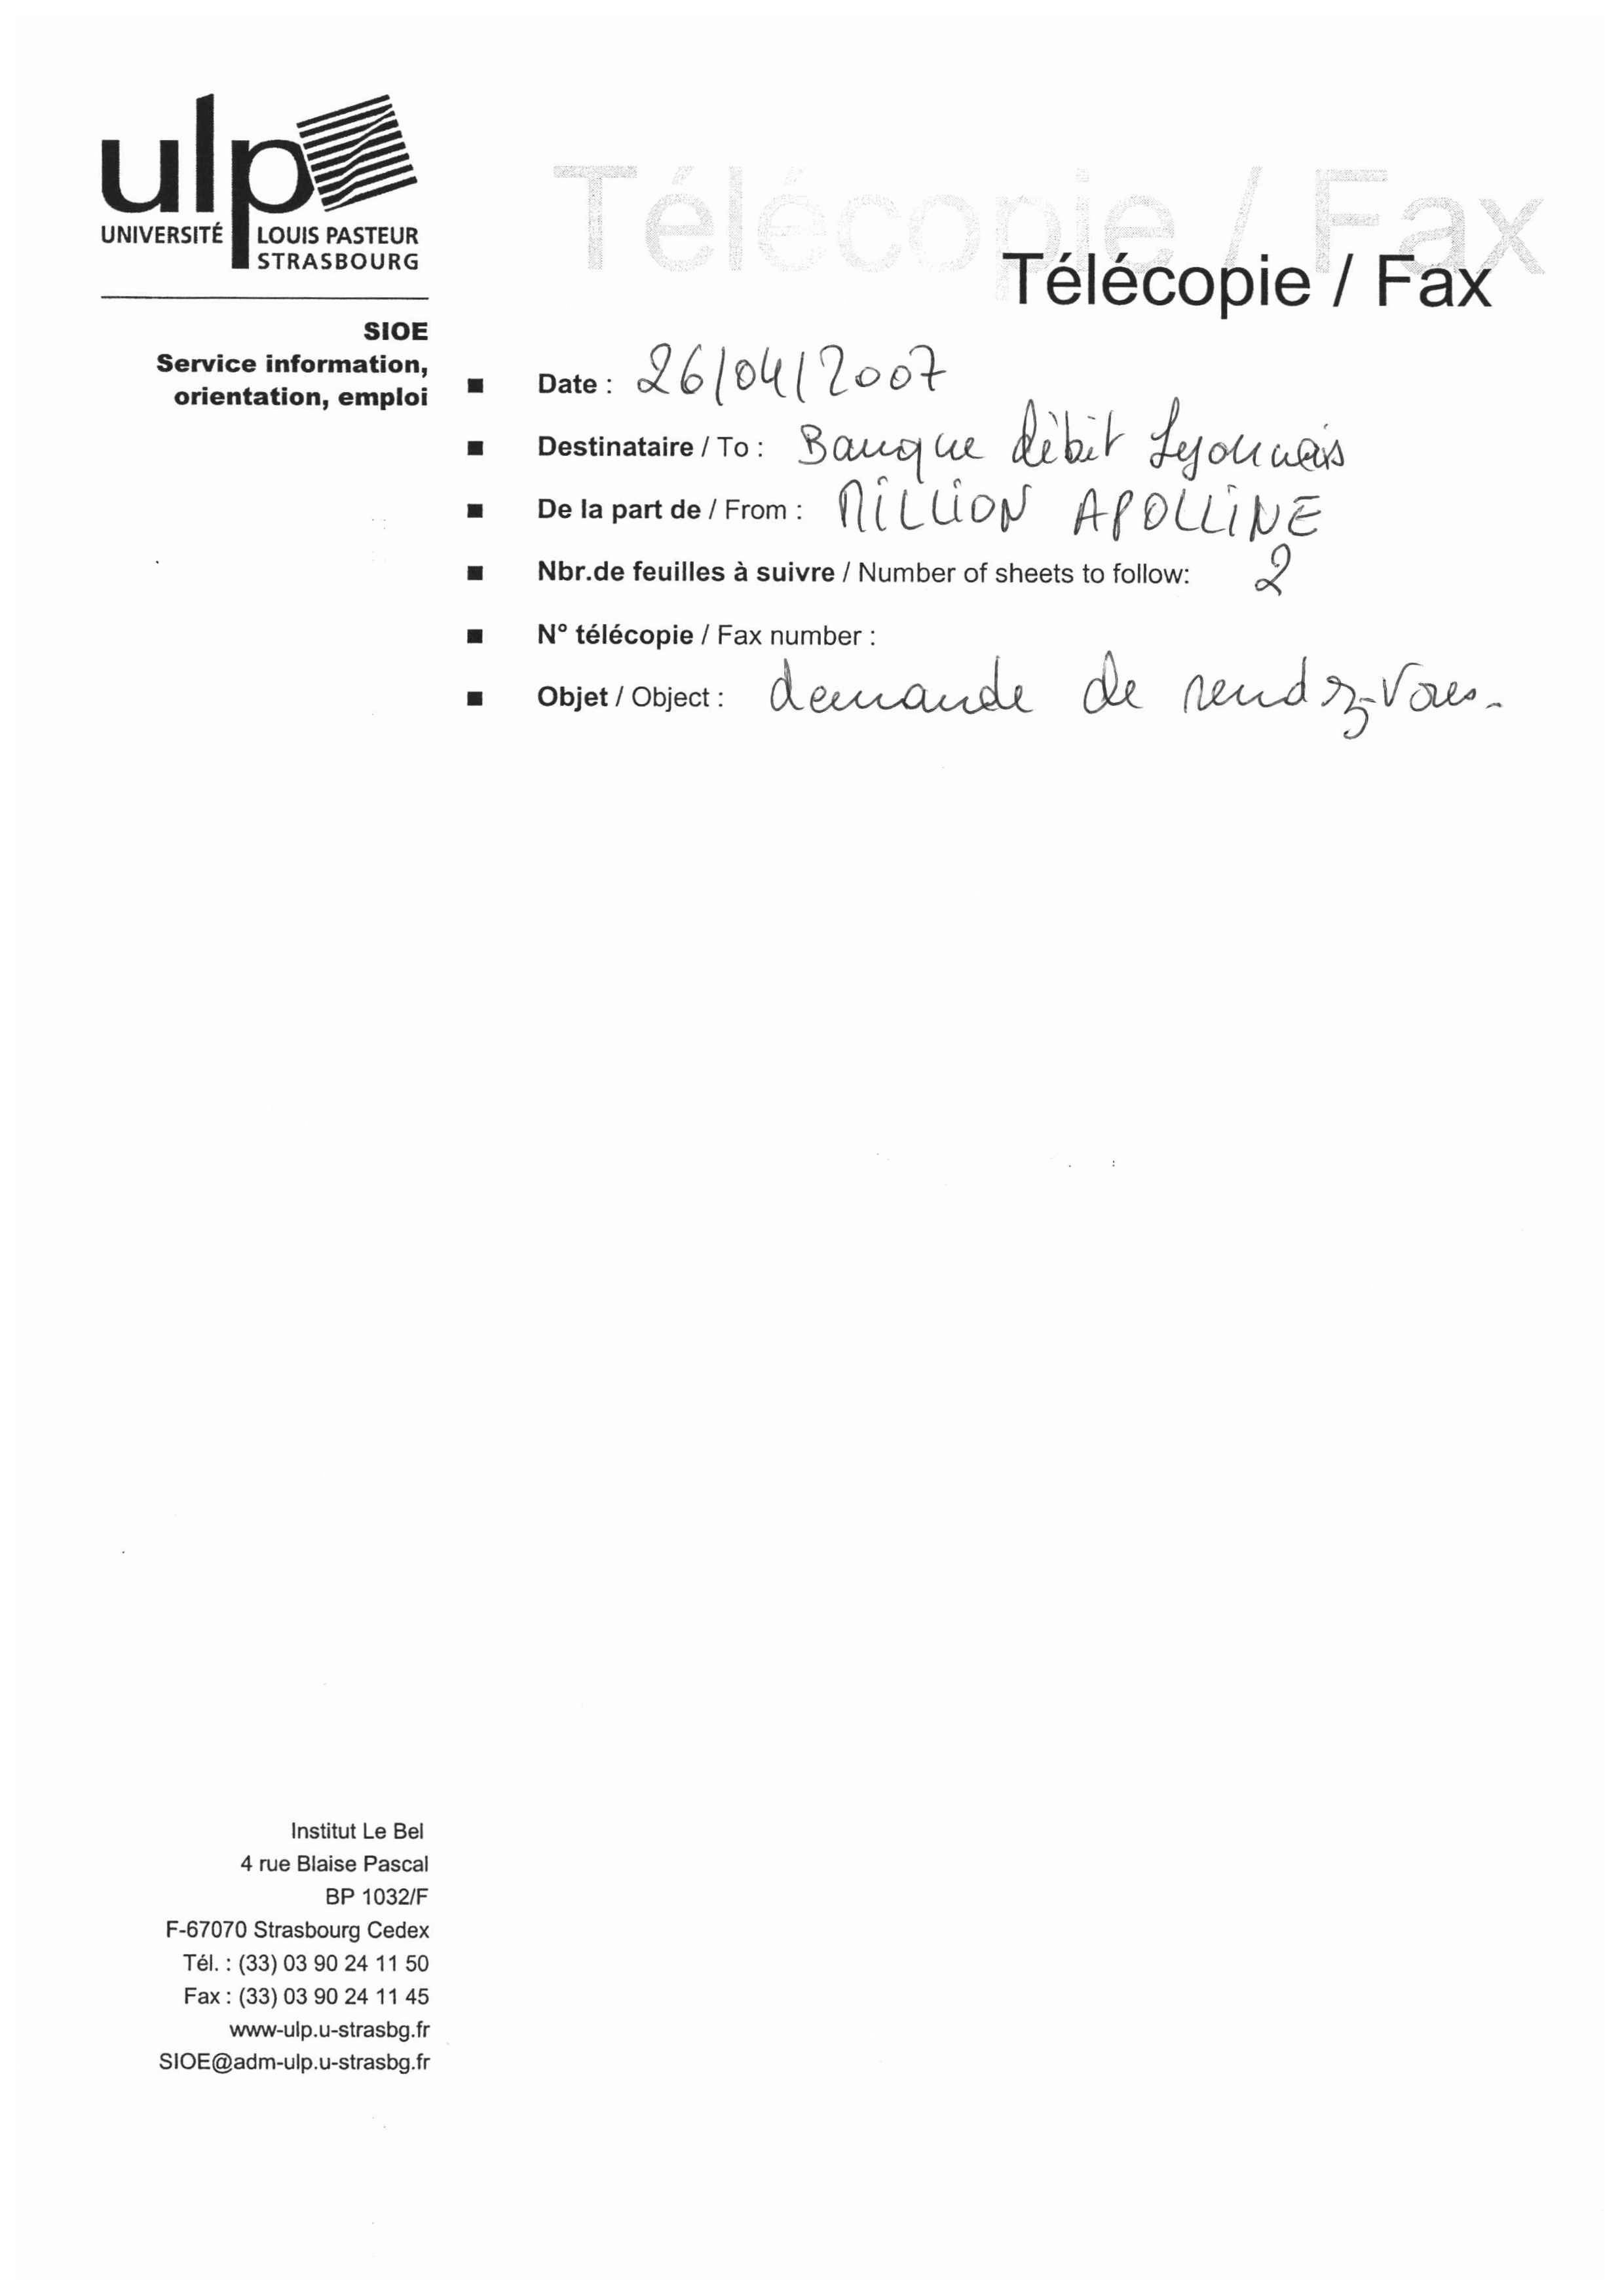 ulp
UNIVERSITÉ LOUIS PASTEUR
STRASBOURG
Télécopie / Fax
Télécopie / Fax
SIOE
Service information,
orientation, emploi
Date : 26/04/2007
Destinataire / To : Banque débit Lyonnais
De la part de / From : MILLION APOLLINE
Nbr.de feuilles à suivre / Number of sheets to follow: 2
N° télécopie / Fax number :
Objet / Object : demande de rendez-vous.
Institut Le Bel
4 rue Blaise Pascal
BP 1032/F
F-67070 Strasbourg Cedex
Tél. : (33) 03 90 24 11 50
Fax : (33) 03 90 24 11 45
www-ulp.u-strasbg.fr
SIOE@adm-ulp.u-strasbg.fr